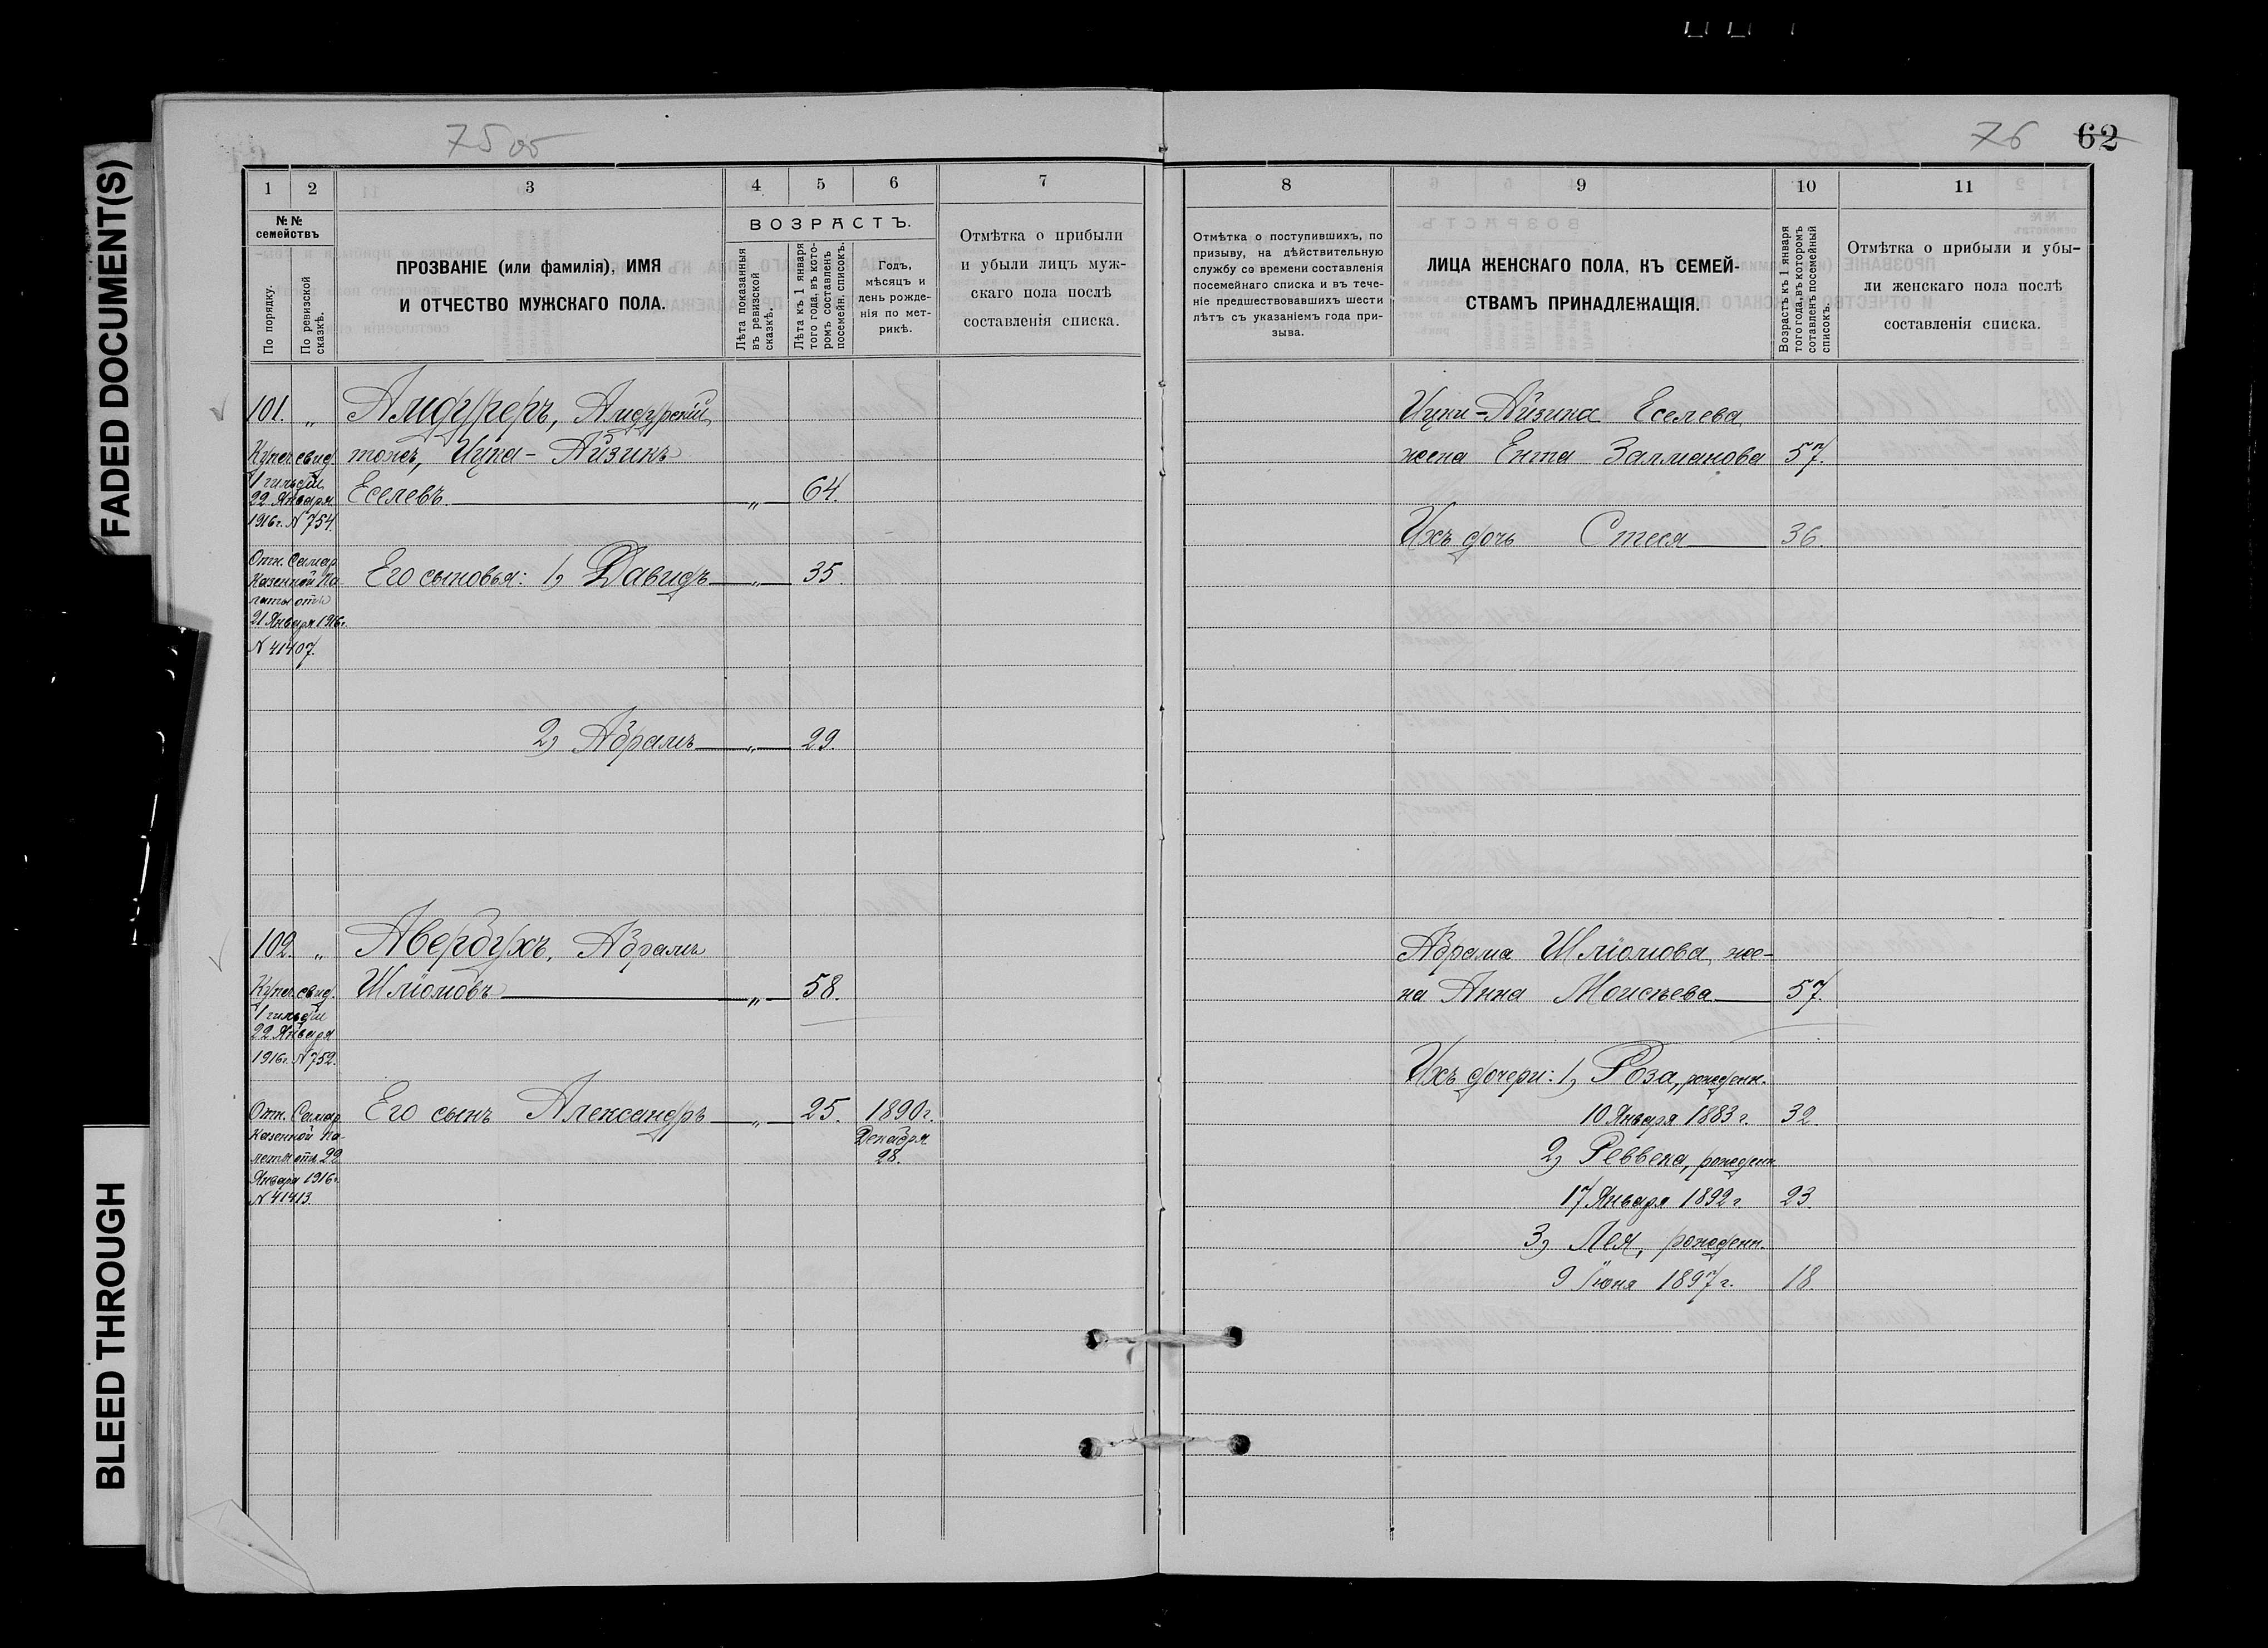 FADED DOCUMENT(S)
BLEED THROUGH
75 об
1
2
3
4
5
6
7
№ №
семействъ
По порядку.
По ревизской
сказкѣ.
ПРОЗВАНІЕ (или фамилія), ИМЯ
И ОТЧЕСТВО МУЖСКАГО ПОЛА.
ВОЗРАСТЪ.
Лѣта показанныя
въ ревизской
сказкѣ.
Лѣта къ 1 января
того года, въ кото-
ромъ составленъ
посемейн. списокъ.
Годъ,
мѣсяцъ и
день рожде-
нія по мет-
рикѣ.
Отмѣтка о прибыли
и убыли лицъ муж-
скаго пола послѣ
составленія списка.
101. „ Амдуреръ, Амдурскій
тожъ, Ицка-Айзикъ
Еселевъ „ 64.
Купеч. свид.
1 гильдіи
22 Января
1916 г. № 754.
Отн. Самар.
Казенной Па
латы отъ
21 Января 1916 г.
№ 41407.
Его сыновья: 1, Давидъ „ 35.
2, Абрамъ „ 29.
102. „ Авербухъ, Абрамъ
Шліомовъ „ 58.
Купеч. свид.
1 гильдіи
22 Января
1916 г. № 752.
Отн. Самар.
Казенной Па-
латы отъ 22
Января 1916 г.
№ 41413.
Его сынъ Александръ „ 25. 1890 г.
Декабря
28.
76 62
8
9
10
11
Отмѣтка о поступившихъ, по
призыву, на дѣйствительную
службу со времени составленія
посемейнаго списка и въ тече-
ніе предшествовавшихъ шести
лѣтъ съ указаніемъ года при-
зыва.
ЛИЦА ЖЕНСКАГО ПОЛА, КЪ СЕМЕЙ-
СТВАМЪ ПРИНАДЛЕЖАЩІЯ.
Возрастъ къ 1 января
того года, въ которомъ
сотавленъ посемейный
списокъ.
Отмѣтка о прибыли и убы-
ли женскаго пола послѣ
составленія списка.
Ицки-Айзика Еселева
жена Ента Залманова 57.
Ихъ дочь Стеся 36.
Абрама Шліомова же-
на Анна Моисѣева 57.
Ихъ дочери: 1, Роза, рожденн.
10 Января 1883 г. 32.
2, Реввека, рожденн
17 Января 1892 г. 23.
3, Лея, рожденн.
9 Іюня 1897 г. 18.